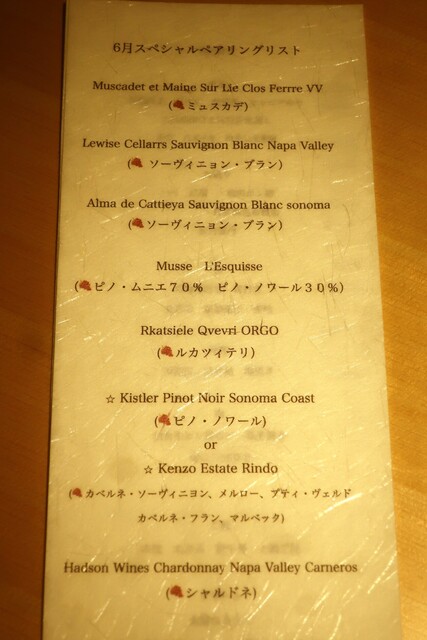 6月スペシャルペアリングリスト
Muscadet et Maine Sur Lie Clos Ferrre VV
(ミュスカデ)
Lewise Cellarrs Sauvignon Blanc Napa Valley
(ソーヴィニョン・ブラン)
Alma de Cattieya Sauvignon Blanc sonoma
(ソーヴィニョン・ブラン)
Musse L'Esquisse
(ピノ・ムニエ70% ピノ・ノワール30%)
Rkatsiele Qvevri ORGO
(ルカツィテリ)
☆ Kistler Pinot Noir Sonoma Coast
(ピノ・ノワール)
or
☆ Kenzo Estate Rindo
(カベルネ・ソーヴィニヨン、メルロー、プティ・ヴェルド
カベルネ・フラン、マルベッタ)
Hadson Wines Chardonnay Napa Valley Carneros
(シャルドネ)